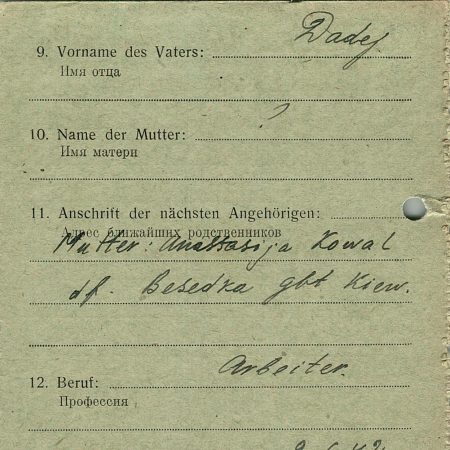 9. Vorname des Vaters: Dadej
Имя отца
10. Name der Mutter: ?
Имя матери
11. Anschrift der nächsten Angehörigen:
Адрес ближайших родственников
Mutter: Anastasija Kowal
df. Besedka gbt Kiew.
12. Beruf: Arbeiter.
Профессия